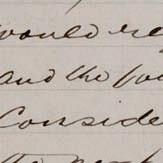 would re
and the fo
Conside